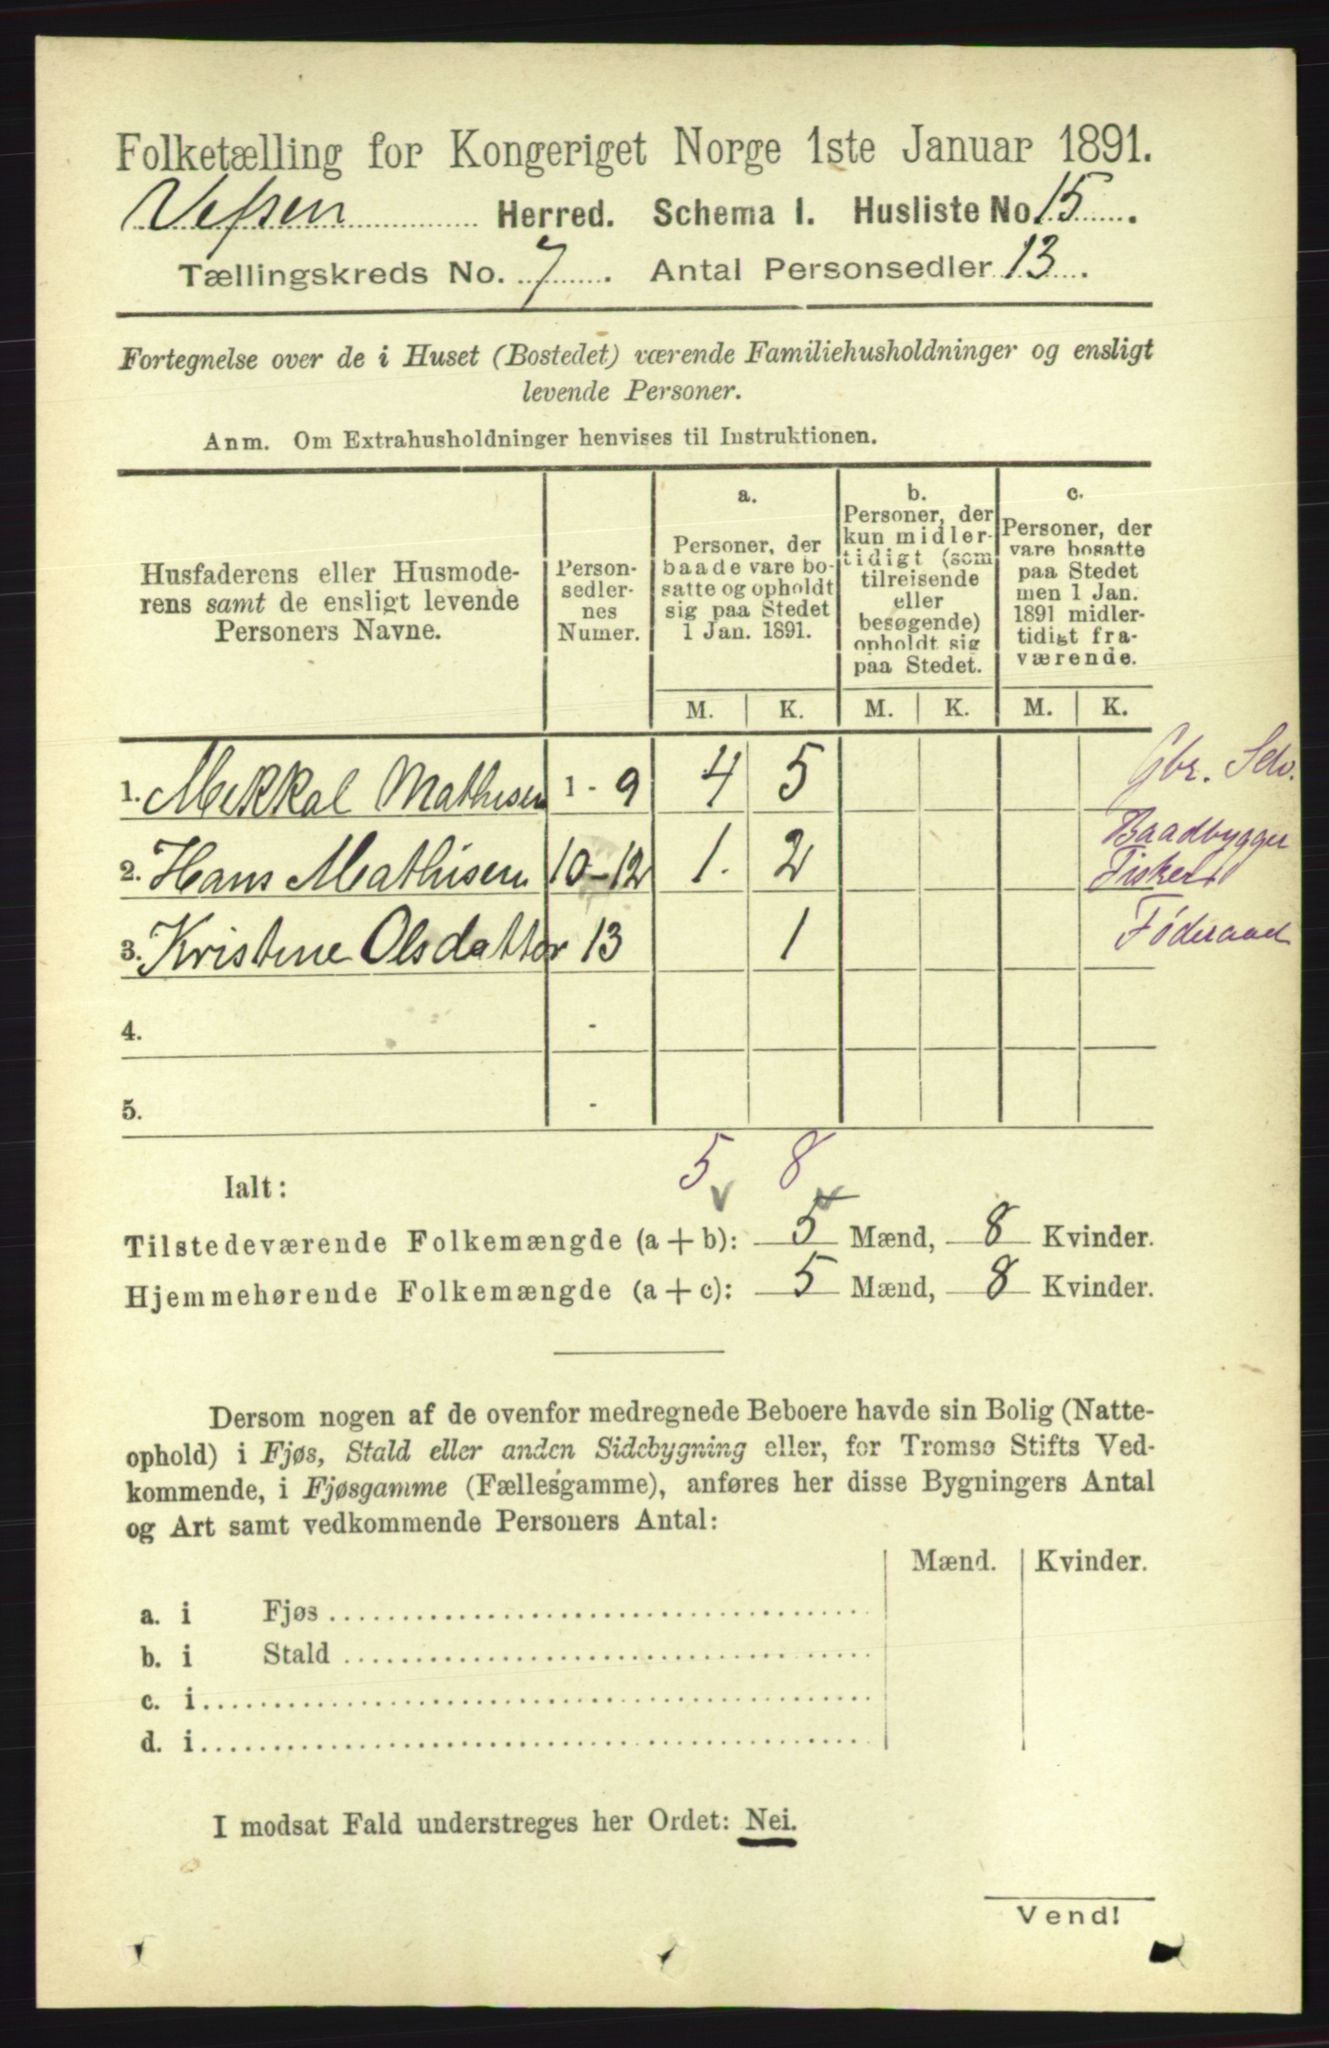 Folketælling for Kongeriget Norge 1ste Januar 1891.
Vefsen Herred. Schema I. Husliste No. 15.
Tællingskreds No. 7. Antal Personsedler 13.
Fortegnelse over de i Huset (Bostedet) værende Familiehusholdninger og ensligt
levende Personer.
Anm. Om Extrahusholdninger henvises til Instruktionen.
Husfaderens eller Husmode-
rens samt de ensligt levende
Personers Navne.
Person-
sedler-
nes
Numer.
a.
Personer, der
baade vare bo-
satte og opholdt
sig paa Stedet
1 Jan. 1891.
b.
Personer, der
kun midler-
tidigt (som
tilreisende
eller
besøgende)
opholdt sig
paa Stedet.
c.
Personer, der
vare bosatte
paa Stedet
men 1 Jan.
1891 midler-
tidigt fra-
værende.
M. K. M. K. M. K.
1. Mekkal Mathisen 1 - 9 4 5 Gbr. Selv.
2. Hans Mathisen 10-12 1. 2 Baadbygger
Fisker
3. Kristine Olsdatter 13 1 Føderaad
4. -
5. -
5 8
Ialt:
Tilstedeværende Folkemængde (a + b): 5 Mænd, 8 Kvinder.
Hjemmehørende Folkemængde (a + c): 5 Mænd, 8 Kvinder.
Dersom nogen af de ovenfor medregnede Beboere havde sin Bolig (Natte-
ophold) i Fjøs, Stald eller anden Sidebygning eller, for Tromsø Stifts Ved-
kommende, i Fjøsgamme (Fællesgamme), anføres her disse Bygningers Antal
og Art samt vedkommende Personers Antal:
Mænd. Kvinder.
a. i Fjøs
b. i Stald
c. i
d. i
I modsat Fald understreges her Ordet: Nei.
Vend!